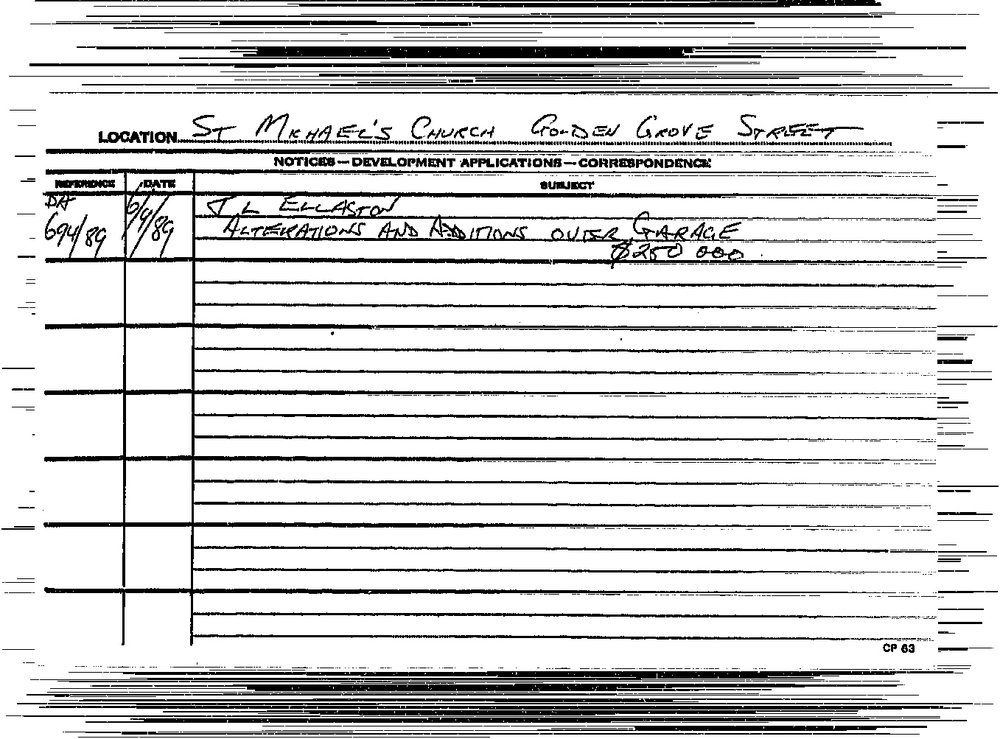 LOCATION ST MICHAEL'S CHURCH GOLDEN GROVE STREET
NOTICES — DEVELOPMENT APPLICATIONS — CORRESPONDENCE
REFERENCE DATE SUBJECT
DA 694/89 6/9/89 J L ELLASTON
ALTERATIONS AND ADDITIONS GARAGE
$250 000
CP 63